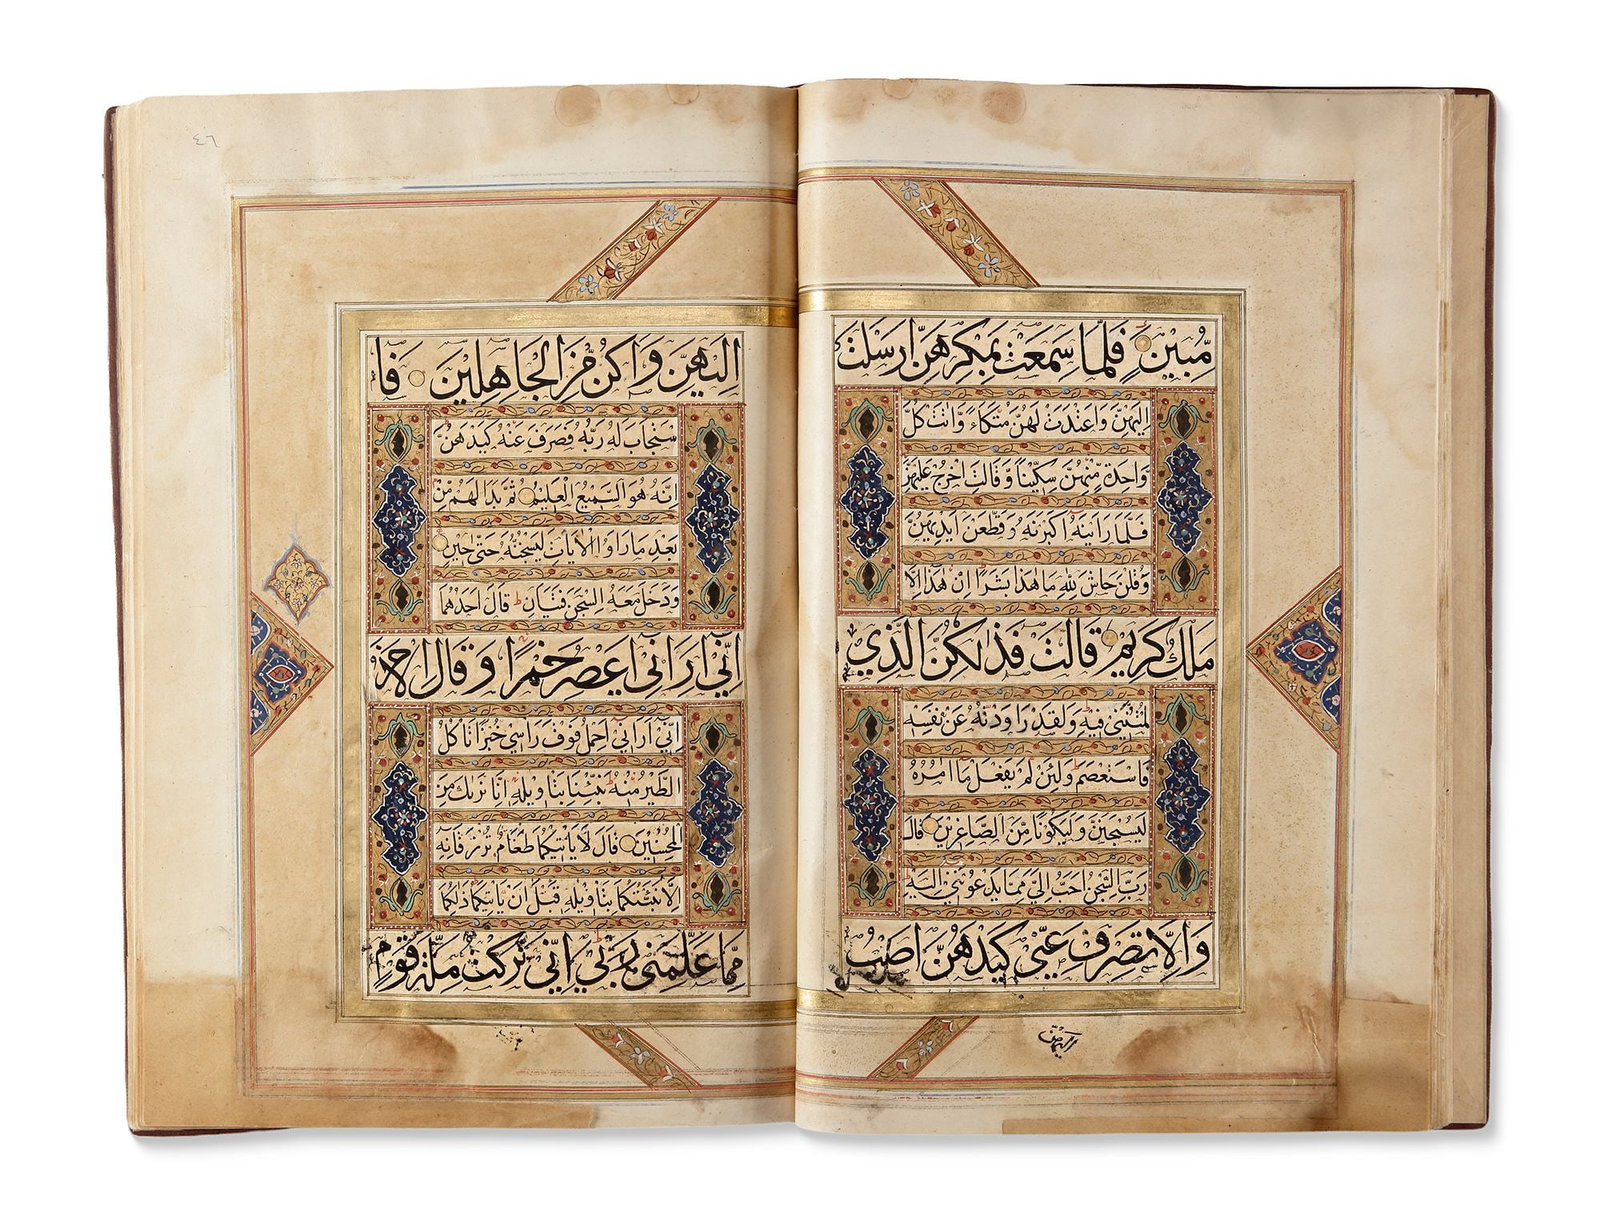 مُّبِينٍ فَلَمَّا سَمِعَتْ بِمَكْرِهِنَّ أَرْسَلَتْ
إِلَيْهِنَّ وَأَعْتَدَتْ لَهُنَّ مُتَّكَاءً وَآتَتْ كُلَّ
وَاحِدَةٍ مِّنْهُنَّ سِكِّينًا وَقَالَتِ اخْرُجْ عَلَيْهِنَّ
فَلَمَّا رَأَيْنَهُ أَكْبَرْنَهُ وَقَطَّعْنَ أَيْدِيَهُنَّ
وَقُلْنَ حَاشَ لِلَّهِ مَا هَذَا بَشَرًا إِنْ هَذَا إِلَّا
مَلَكٌ كَرِيمٌ قَالَتْ فَذَلِكُنَّ الَّذِي
لُمْتُنَّنِي فِيهِ وَلَقَدْ رَاوَدْتُهُ عَنْ نَفْسِهِ
فَاسْتَعْصَمَ وَلَئِنْ لَمْ يَفْعَلْ مَا آمُرُهُ
لَيُسْجَنَنَّ وَلَيَكُونًا مِّنَ الصَّاغِرِينَ قَالَ
رَبِّ السِّجْنُ أَحَبُّ إِلَيَّ مِمَّا يَدْعُونَنِي إِلَيْهِ
وَإِلَّا تَصْرِفْ عَنِّي كَيْدَهُنَّ أَصْبُ
٤٦
إِلَيْهِنَّ وَأَكُنْ مِنَ الْجَاهِلِينَ فَا
سْتَجَابَ لَهُ رَبُّهُ فَصَرَفَ عَنْهُ كَيْدَهُنَّ
إِنَّهُ هُوَ السَّمِيعُ الْعَلِيمُ ثُمَّ بَدَا لَهُمْ مِنْ
بَعْدِ مَا رَأَوُا الْآيَاتِ لَيَسْجُنُنَّهُ حَتَّى حِينٍ
وَدَخَلَ مَعَهُ السِّجْنَ فَتَيَانِ قَالَ أَحَدُهُمَا
إِنِّي أَرَانِي أَعْصِرُ خَمْرًا وَقَالَ الْآخَرُ
إِنِّي أَرَانِي أَحْمِلُ فَوْقَ رَأْسِي خُبْزًا تَأْكُلُ
الطَّيْرُ مِنْهُ نَبِّئْنَا بِتَأْوِيلِهِ إِنَّا نَرَاكَ مِنَ
الْمُحْسِنِينَ قَالَ لَا يَأْتِيكُمَا طَعَامٌ تُرْزَقَانِهِ
إِلَّا نَبَّأْتُكُمَا بِتَأْوِيلِهِ قَبْلَ أَنْ يَأْتِيَكُمَا ذَلِكُمَا
مِمَّا عَلَّمَنِي رَبِّي إِنِّي تَرَكْتُ مِلَّةَ قَوْمٍ